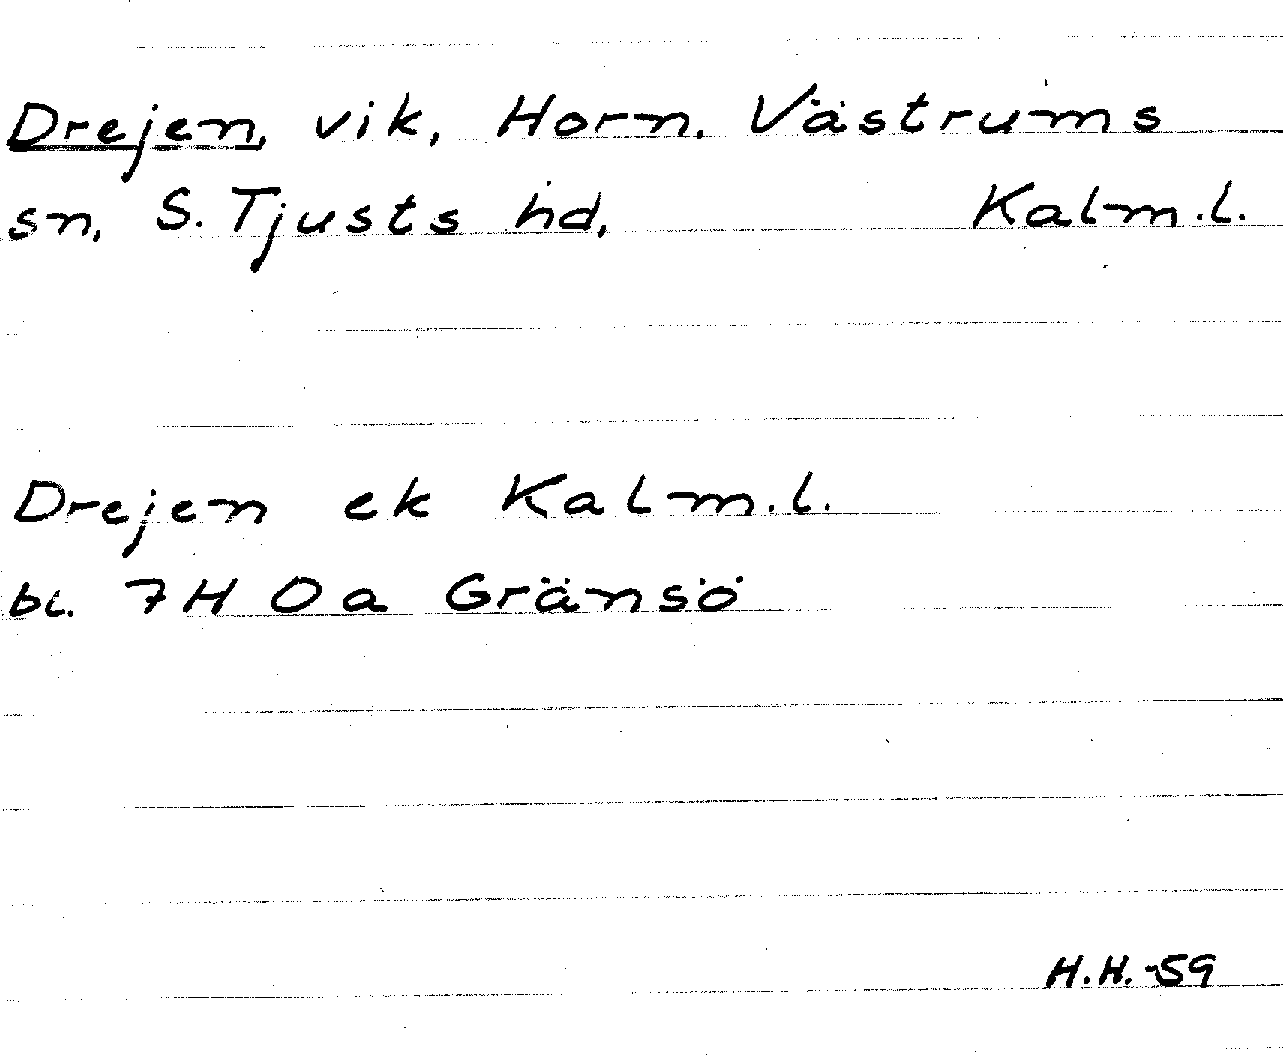 Drejen, vik, Horn. Västrums
sn, S. Tjusts hd, Kalm.l.
Drejen ek Kalm.l.
bl. 7H 0a Gränsö
H.H. -59